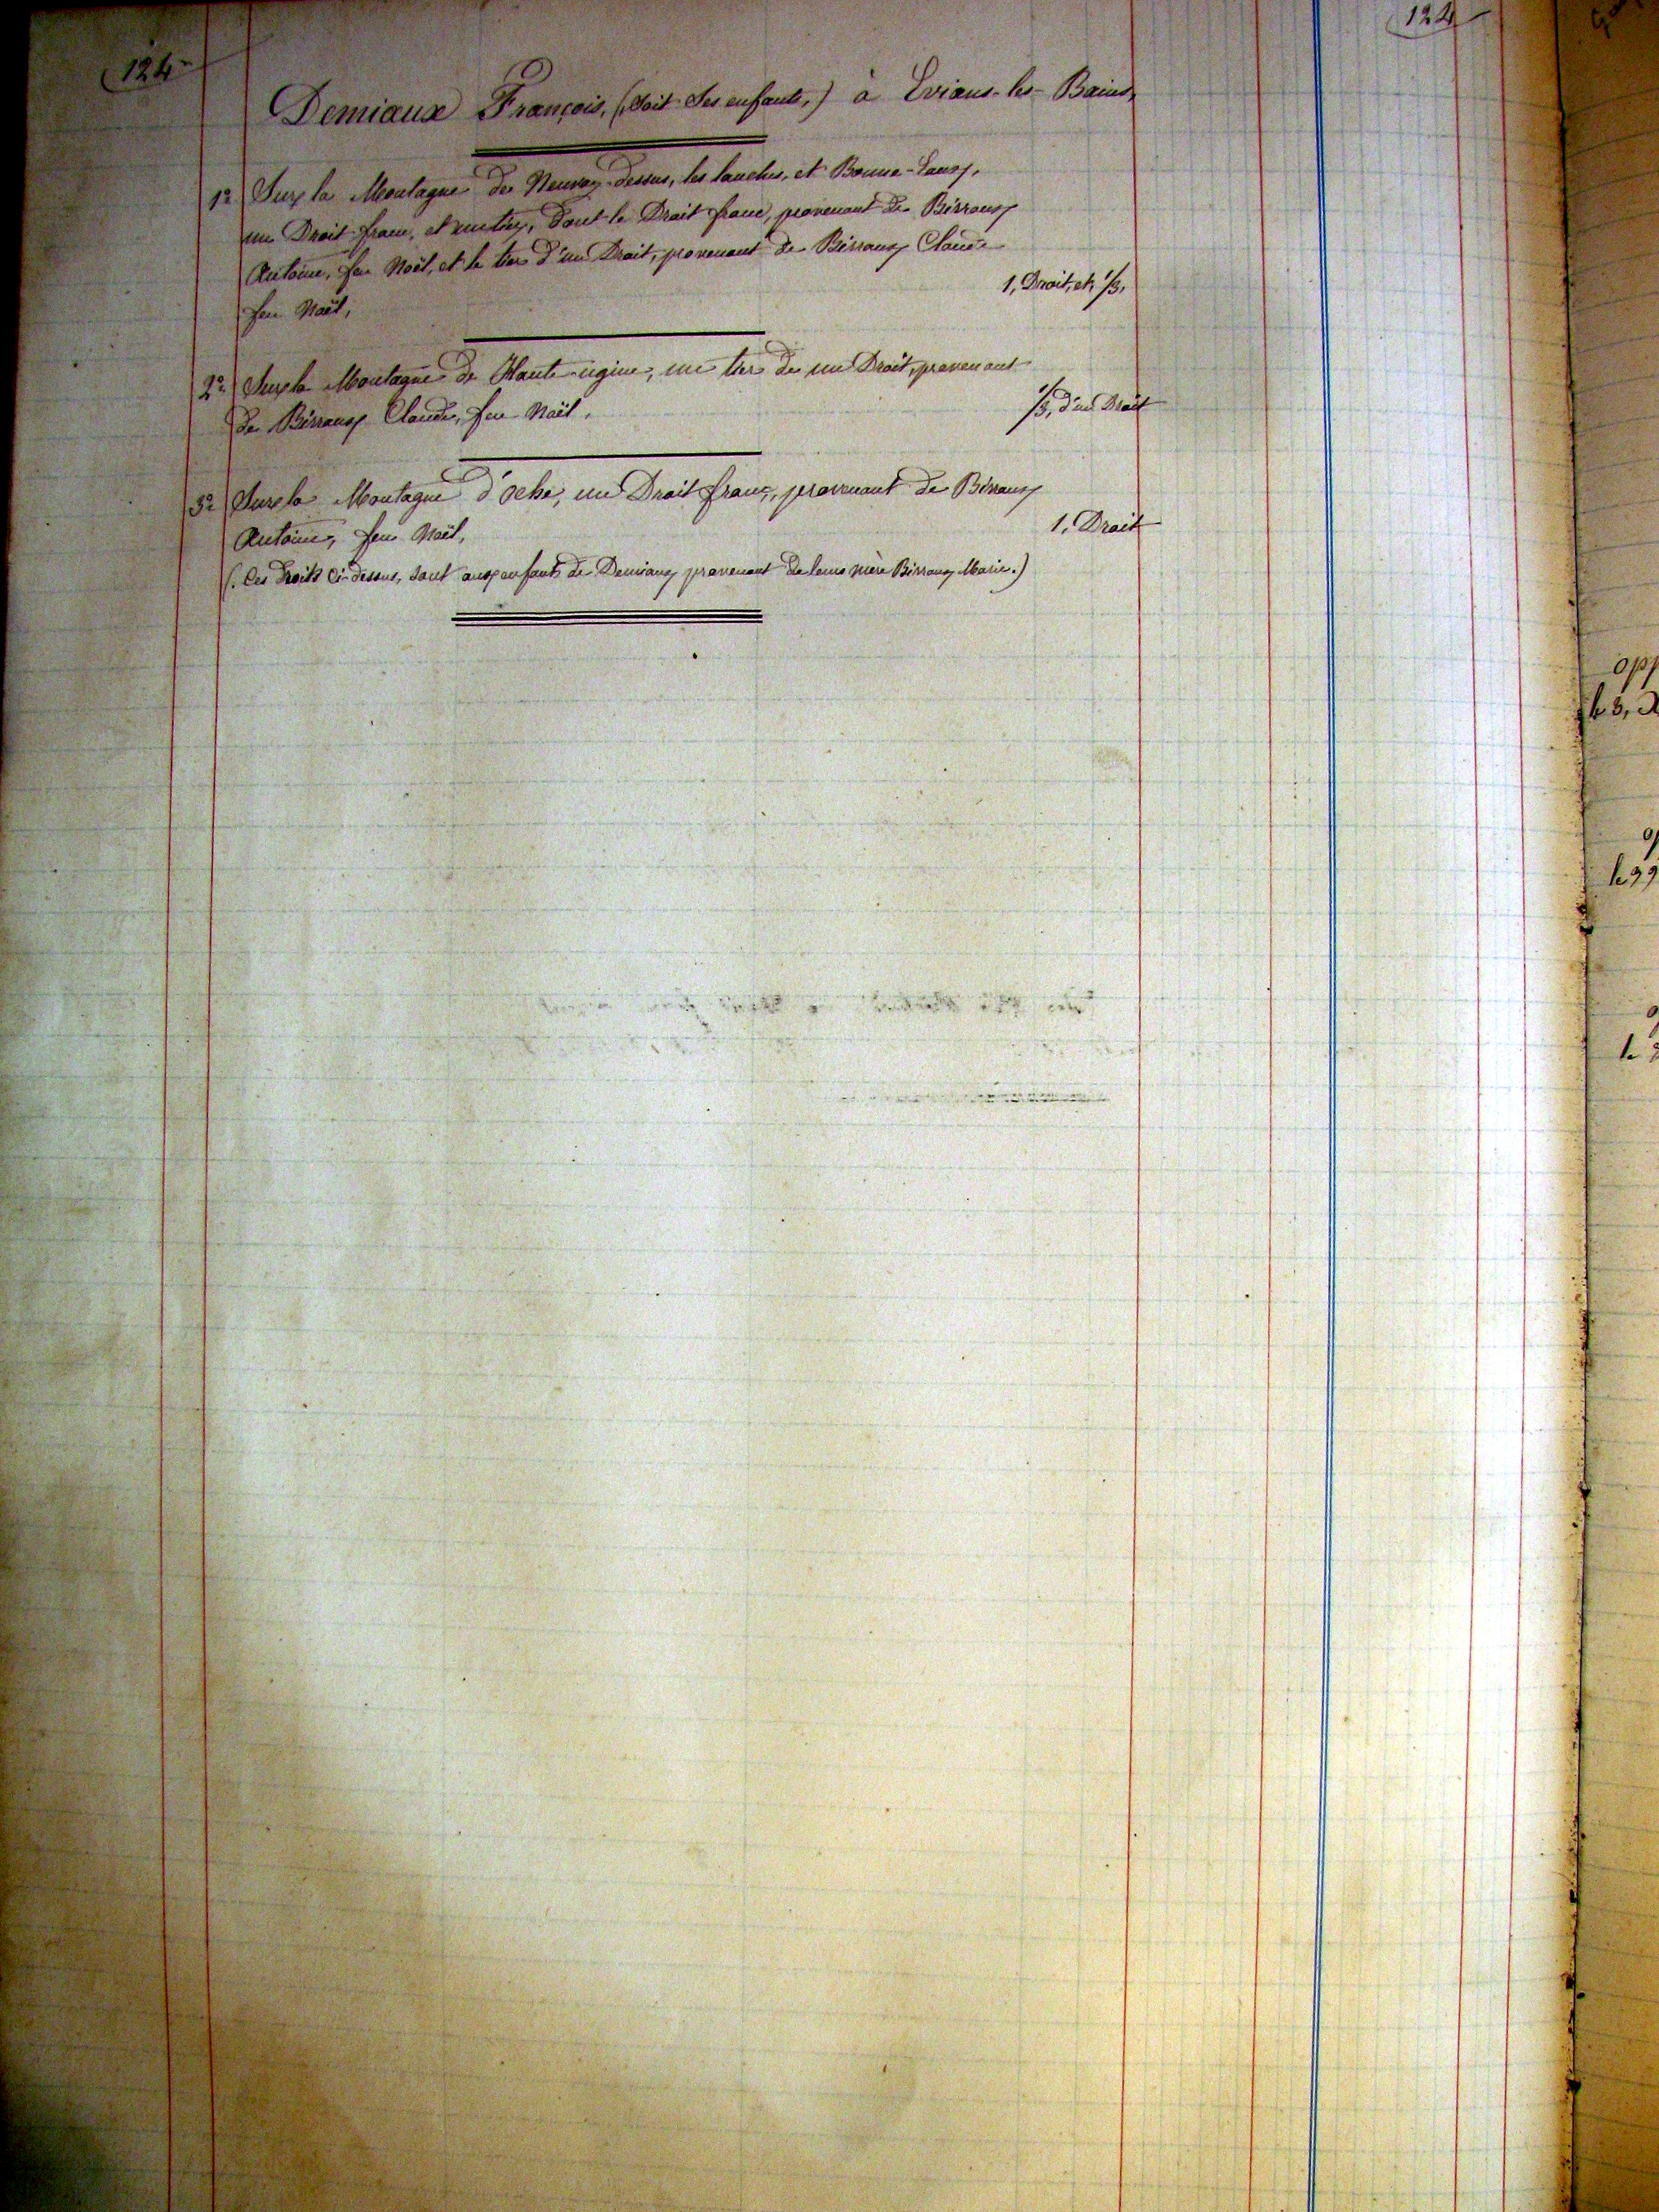 124
124
Demiaux François, (Soit Ses enfants,) à Evians-les-Bains,
1º Sur la Montagne de Neuvaz-dessus, les lanches, et Bonne-Eaux,
un Droit franc, et un tiers, dont le Droit franc, provenant de Birraux
Antoine, feu Noël, et le tiers d'un Droit, provenant de Birraux Claude
feu Noël,
1, Droit, et, 1/3,
2º Sur la Montagne de Haute-ugine, un tiers de un Droit, provenant
de Birraux Claude, feu Noël,
1/3, d'un Droit
3º Sur la Montagne d'oche, un Droit franc, provenant de Birraux
Antoine, feu Noël,
1. Droit
(. Ces Droits Ci-dessus, Sont aux enfants de Demiaux provenant de leurs mère Birraux Marie.)
opp
le 3,